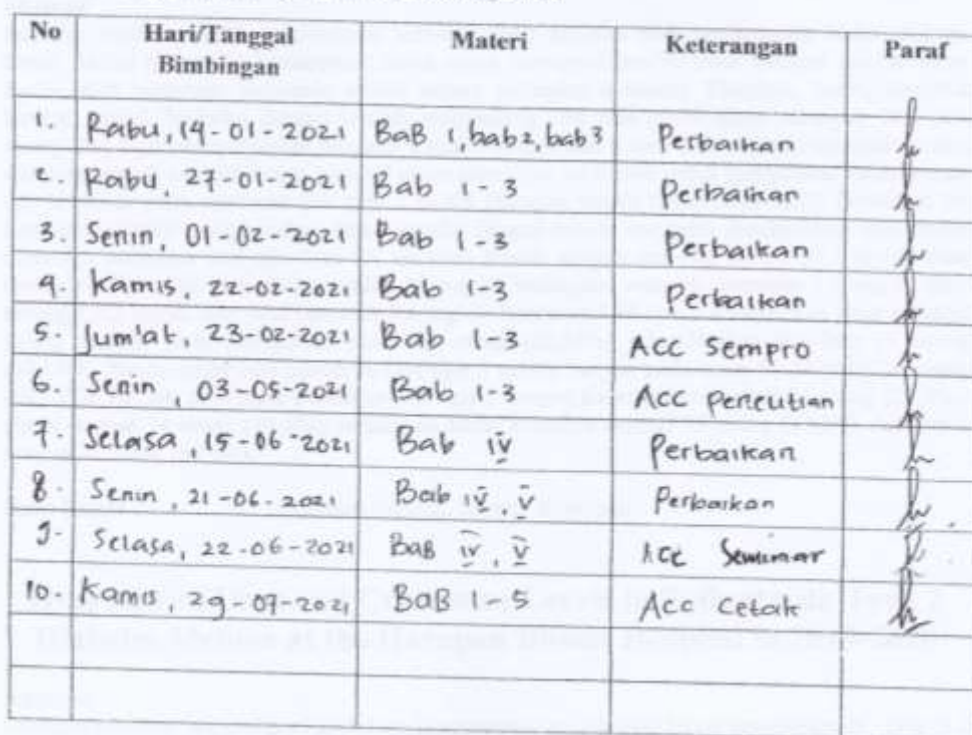 No Hari/Tanggal Bimbingan Materi Keterangan Paraf
1. Rabu, 14-01-2021 BaB 1, bab 2, bab 3 Perbaikan
2. Rabu, 27-01-2021 Bab 1-3 Perbaikan
3. Senin, 01-02-2021 Bab 1-3 Perbaikan
4. Kamis, 22-02-2021 Bab 1-3 Perbaikan
5. Jum'at, 23-02-2021 Bab 1-3 ACC Sempro
6. Senin, 03-05-2021 Bab 1-3 ACC penelitian
7. Selasa, 15-06-2021 Bab IV Perbaikan
8. Senin, 21-06-2021 Bab IV, V Perbaikan
9. Selasa, 22-06-2021 BaB IV, V ACC Seminar
10. Kamis, 29-07-2021 BaB 1-5 Acc Cetak